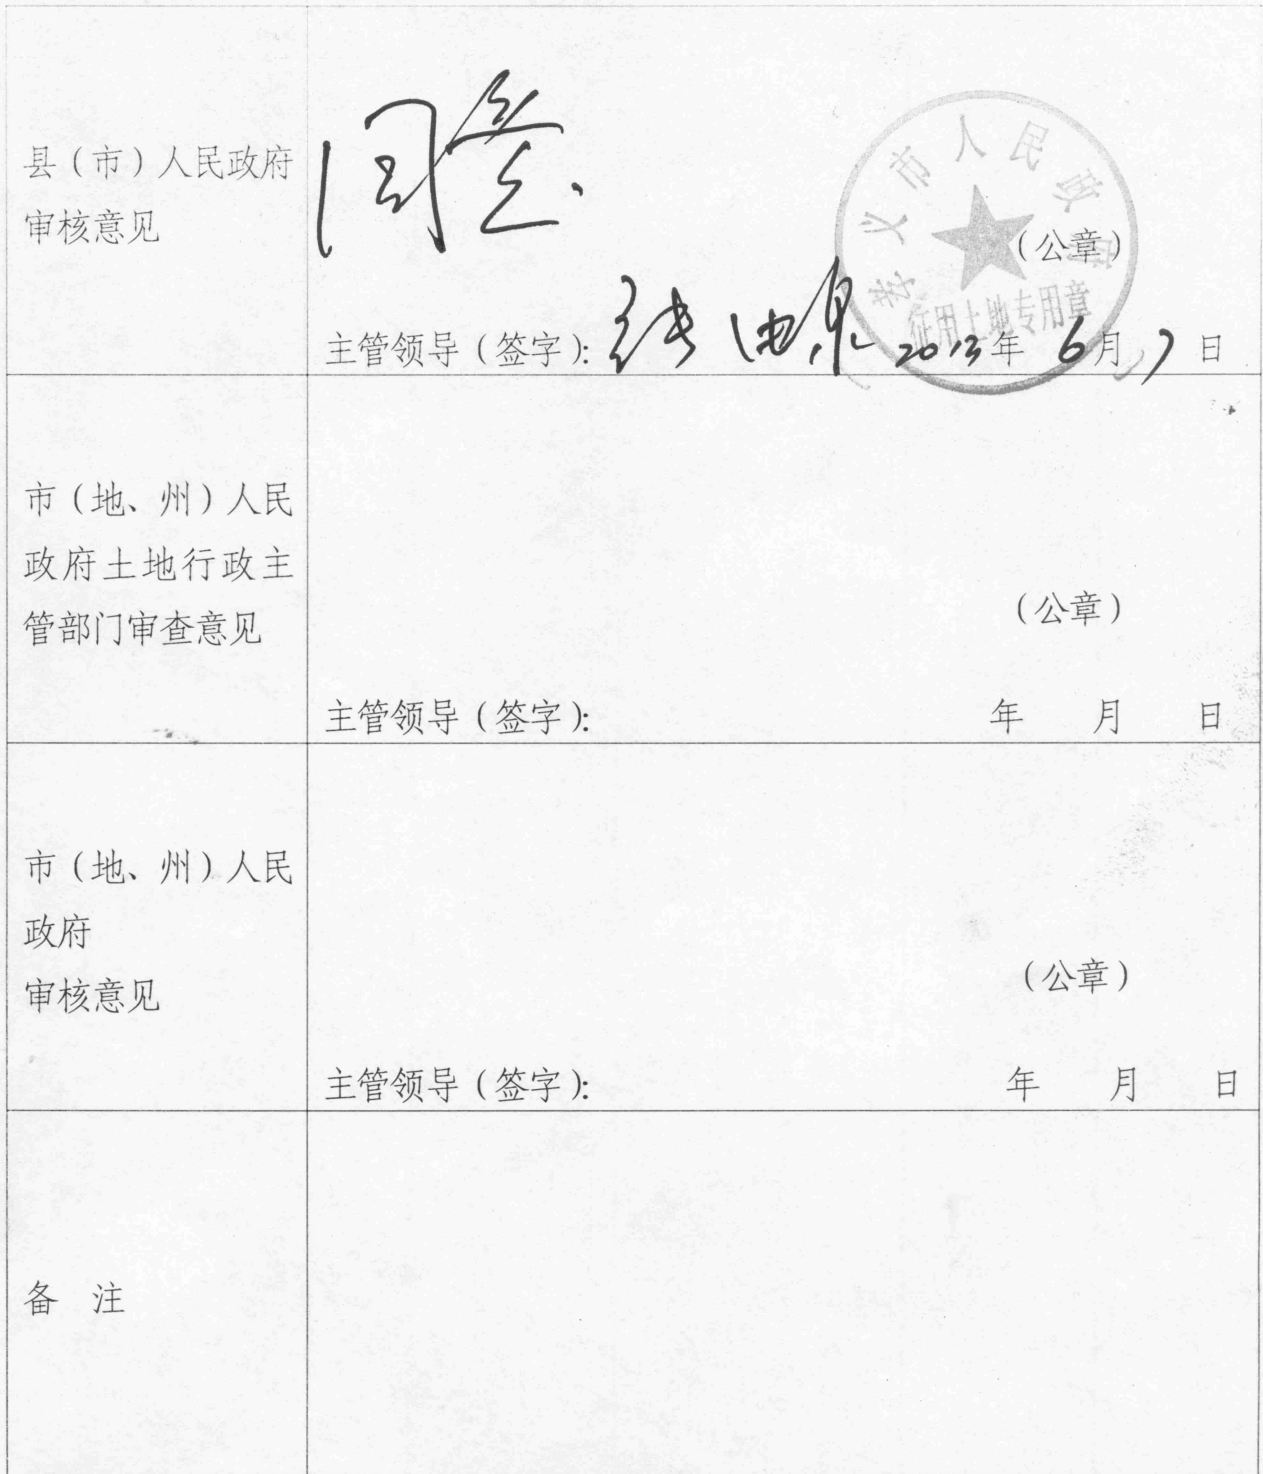 县（市）人民政府
审核意见
同意.
孝义市人民政府
征用土地专用章
（公章）
主管领导（签字）: 张 2013年 6月 7日
市（地、州）人民
政府土地行政主
管部门审查意见
（公章）
主管领导（签字）:
年 月 日
市（地、州）人民
政府
审核意见
（公章）
主管领导（签字）:
年 月 日
备 注